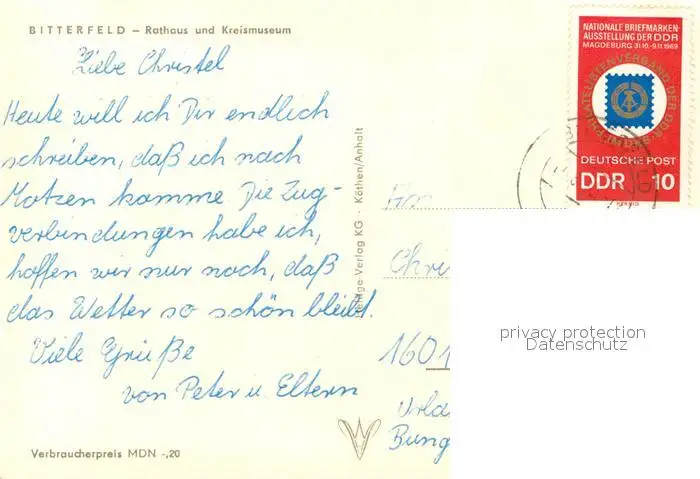 BITTERFELD – Rathaus und Kreismuseum
NATIONALE BRIEFMARKEN-
AUSSTELLUNG DER DDR
MAGDEBURG 31.10.-9.11.1969
PHILATELISTENVERBAND DER DDR
DEUTSCHE POST
DDR 10
Liebe Christel
Heute will ich Dir endlich
schreiben, daß ich nach
Motzen komme. Die Zug-
verbindungen habe ich,
hoffen wir nur noch, daß
das Wetter so schön bleibt.
Viele Grüße
von Peter u. Eltern
Verlag KG · Köthen/Anhalt
Chri
1601
Urla
Bung
privacy protection
Datenschutz
Verbraucherpreis MDN -,20